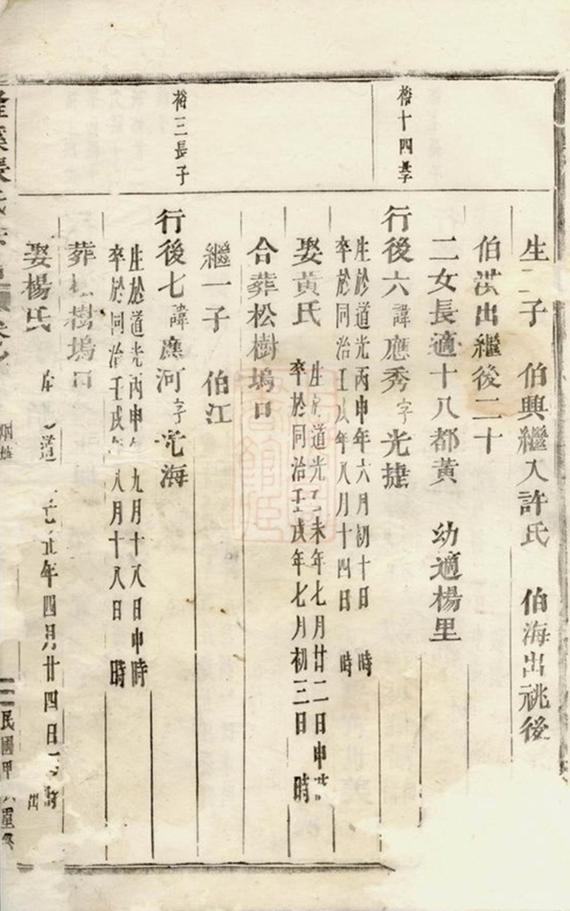 生 子 伯興繼入許氏 伯海出祧後
伯洪出繼後二十
二女長適十八都黃 幼適楊里
裕十四長子
行後六諱應秀字光捷
生於道光丙申年六月初十日 時
卒於同治壬戌年八月十四日 時
娶黃氏
生於道光 未年七月廿二日申時
卒於同治壬戌年七月初三日 時
合葬松樹塢口
繼一子 伯江
裕三長子
行後七諱應河字光海
生於道光丙申年九月十八日申時
卒於同治壬戌年八月十八日 時
葬松樹塢口
娶楊氏
生 道 年四月廿四日 時
張氏宗
民國甲 重修